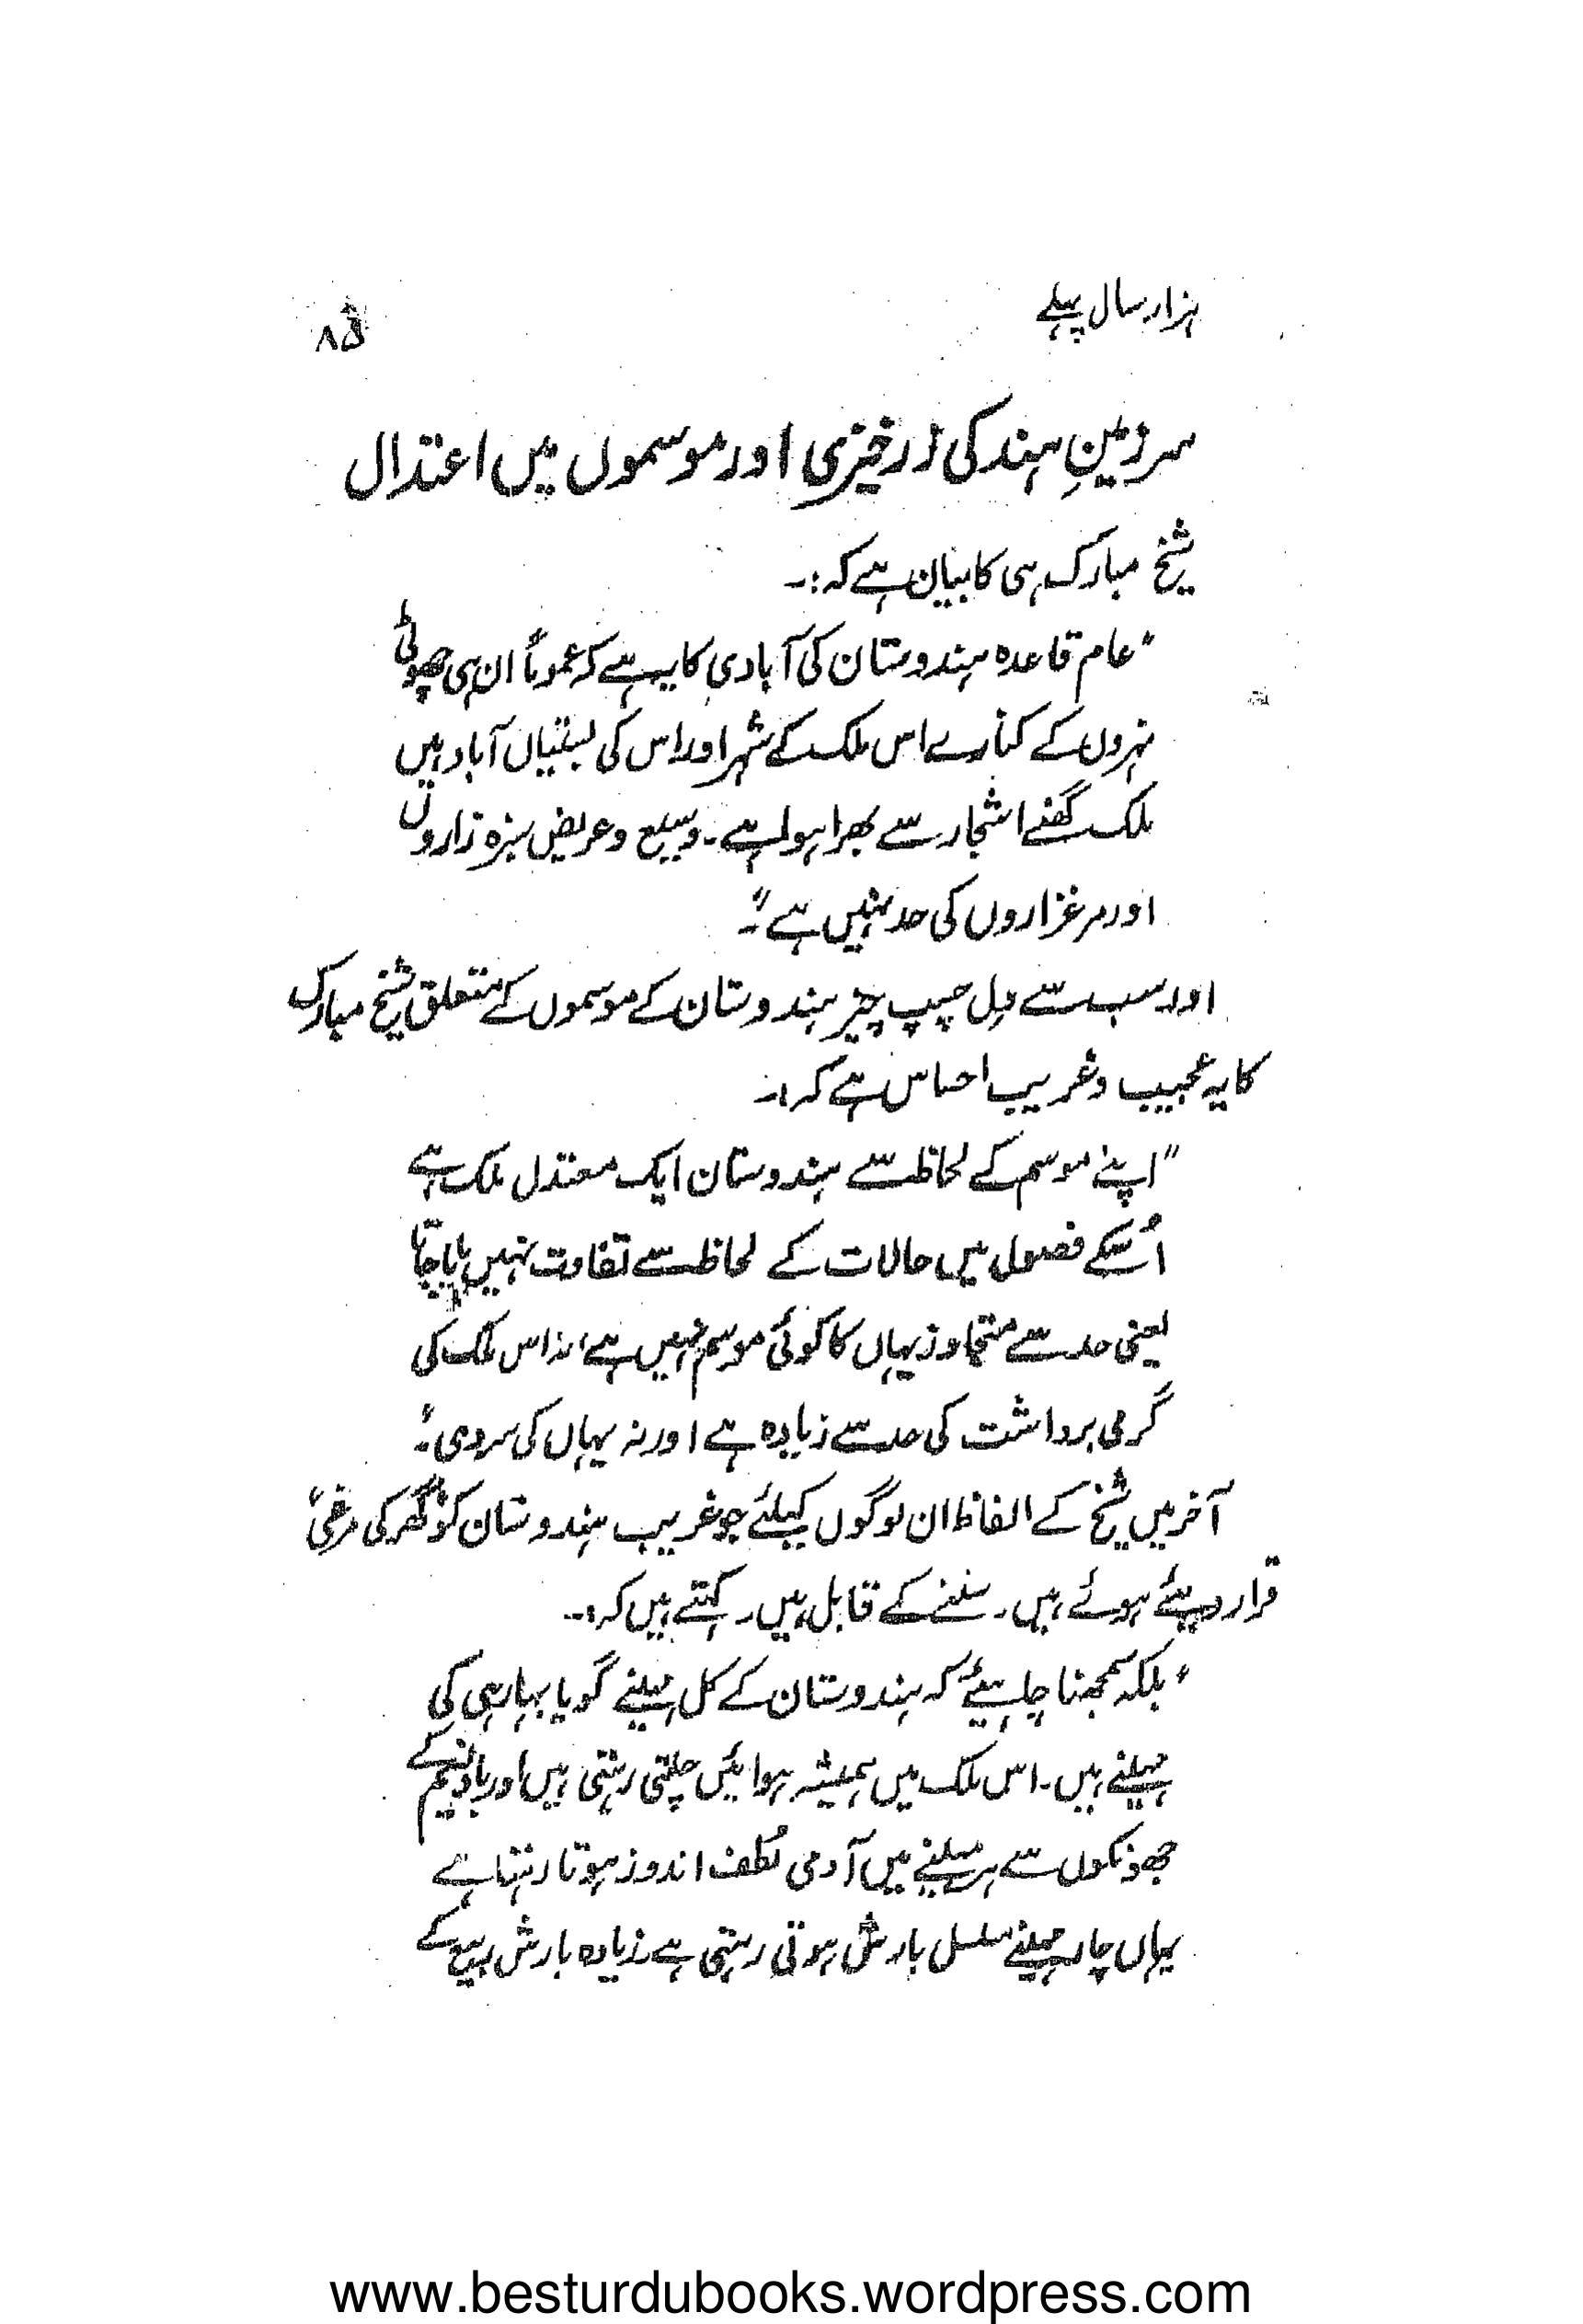 ہزار سال پہلے
۸۵
سرزمینِ ہند کی زرخیزی اور موسموں میں اعتدال
شیخ مبارک ہی کا بیان ہے کہ :۔
"عام قاعدہ ہندوستان کی آبادی کا یہ ہے کہ عموماً ان ہی چھوٹی
نہروں کے کنارے اس ملک کے شہر اور اس کی بستیاں آباد ہیں
ملک گھنے اشجار سے بھرا ہوا ہے۔ وسیع و عریض سبزہ زاروں
اور مرغزاروں کی حد نہیں ہے"۔
اور سب سے دل چسپ چیز ہندوستان کے موسموں کے متعلق شیخ مبارک
کا یہ عجیب و غریب احساس ہے کہ :۔
"اپنے موسم کے لحاظ سے ہندوستان ایک معتدل ملک ہے
اُسکے فصول میں حالات کے لحاظ سے تفاوت نہیں پایا جاتا
یعنی حد سے متجاوز یہاں کا کوئی موسم نہیں ہے، نہ اس ملک کی
گرمی برداشت کی حد سے زیادہ ہے اور نہ یہاں کی سردی"۔
آخر میں شیخ کے الفاظ ان لوگوں کیلئے جو غریب ہندوستان کو "گھر کی مرغی"
قرار دیئے ہوئے ہیں۔ سننے کے قابل ہیں۔ کہتے ہیں کہ :۔
"بلکہ سمجھنا چاہیئے کہ ہندوستان کے کل مہینے گویا بہار ہی کی
مہینے ہیں۔ اس ملک میں ہمیشہ ہوائیں چلتی رہتی ہیں اور باد نسیم کے
جھونکوں سے ہر مہینے میں آدمی لُطف اندوز ہوتا رہتا ہے
یہاں چار مہینے مسلسل بارش ہوتی رہتی ہے زیادہ بارش ربیع کے
www.besturdubooks.wordpress.com